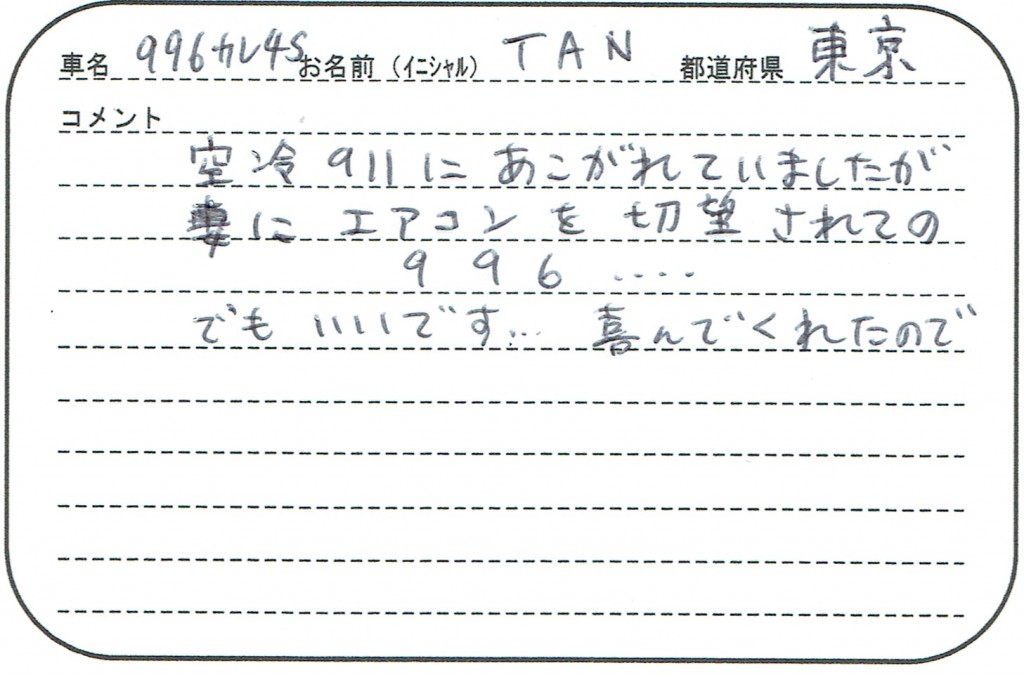 車名 996カレ4S お名前（ｲﾆｼｬﾙ） TAN 都道府県 東京
コメント
空冷911にあこがれていましたが
妻にエアコンを切望されての
996……
でもいいです… 喜んでくれたので